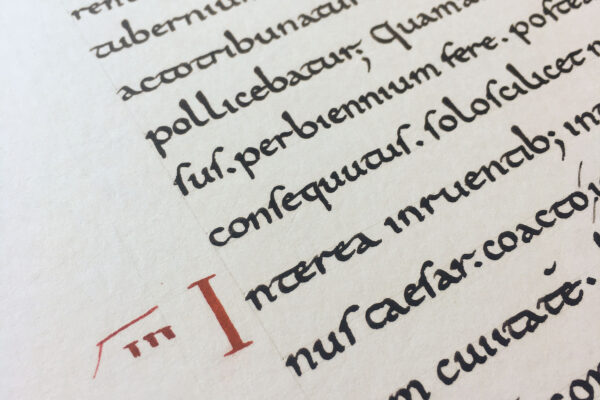 tuberniu
actotribunatur
pollicebatur; Quama
ſuſ. perbiennium fere. poſtea
conſequutuſ. ſoloſcilicet
III Interea inruentib; in
nuſ caeſar. coacto
m ciuitatē.